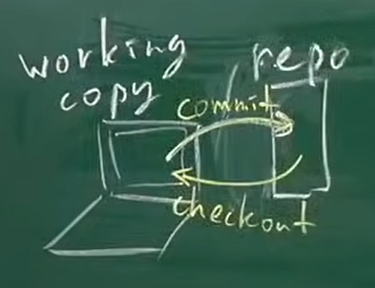 working
copy
repo
commit
checkout